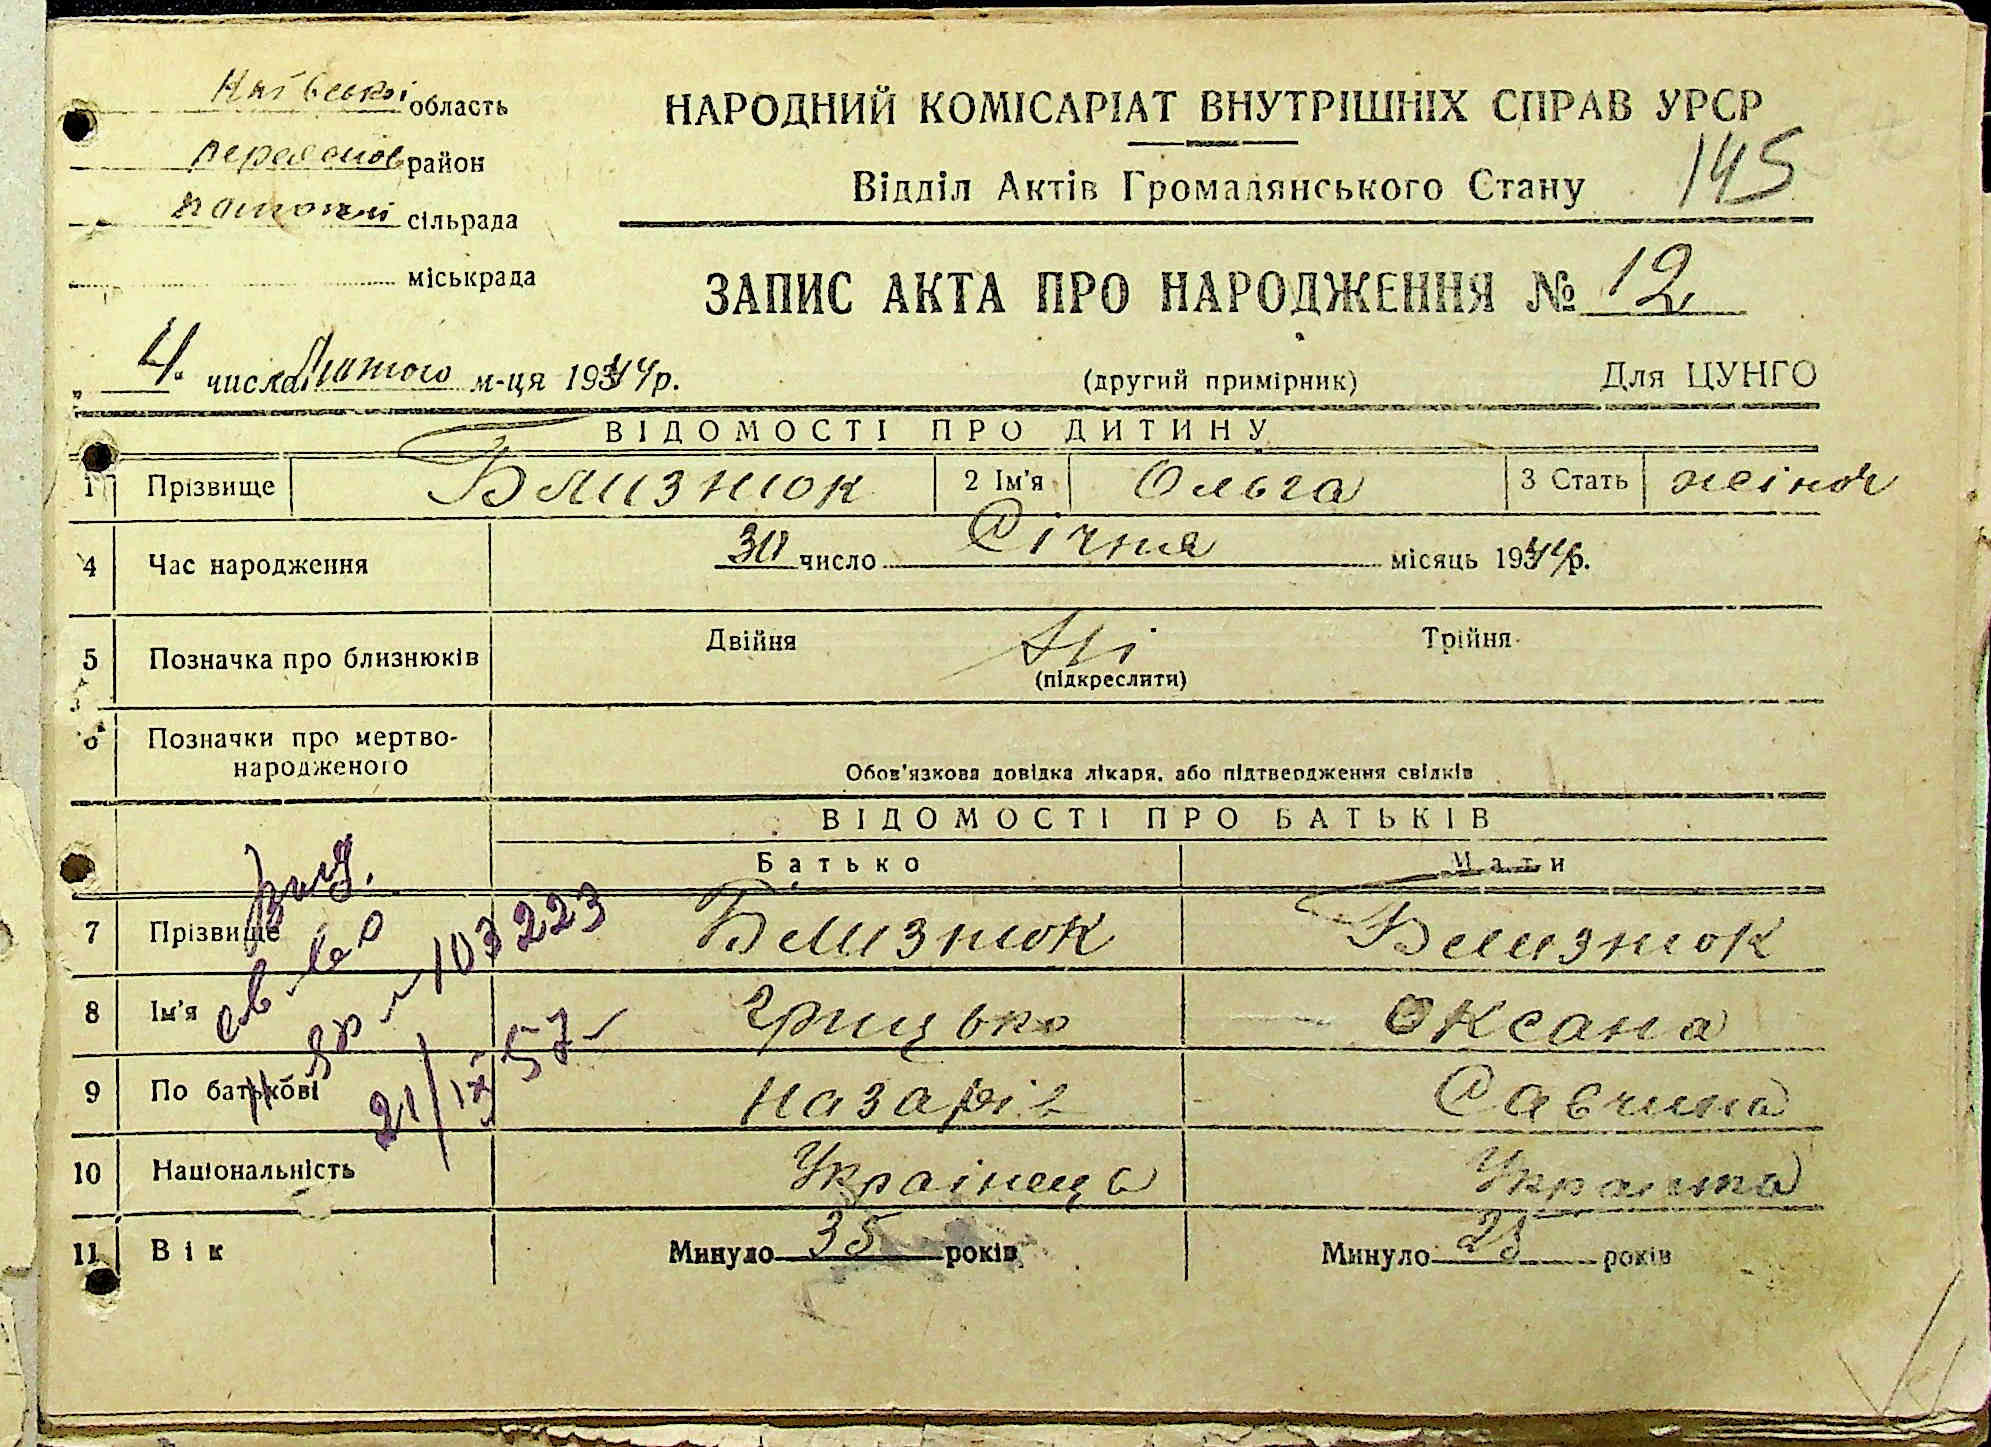 Київської область
Переяслов район
сільрада
міськрада
НАРОДНИЙ КОМІСАРІАТ ВНУТРІШНІХ СПРАВ УРСР
145
Відділ Актів Громадянського Стану
ЗАПИС АКТА ПРО НАРОДЖЕННЯ № 12
„ 4 числа Лютого м-ця 1944 р.
(другий примірник)
Для ЦУНГО
ВІДОМОСТІ ПРО ДИТИНУ
1 Прізвище Близнюк 2 Ім'я Ольга 3 Стать жіноч
4 Час народження 30 число Січня місяць 1944 р.
5 Позначка про близнюків Двійня Ні Трійня
(підкреслити)
6 Позначки про мертво-
народженого
Обов'язкова довідка лікаря, або підтвердження свідків
ВІДОМОСТІ ПРО БАТЬКІВ
Батько Мати
7 Прізвище Близнюк Близнюк
8 Ім'я Грицько Оксана
9 По батькові Назарів Савчина
10 Національність Українець Українка
11 Вік Минуло 35 років Минуло 25 років
103223
21/IX 57